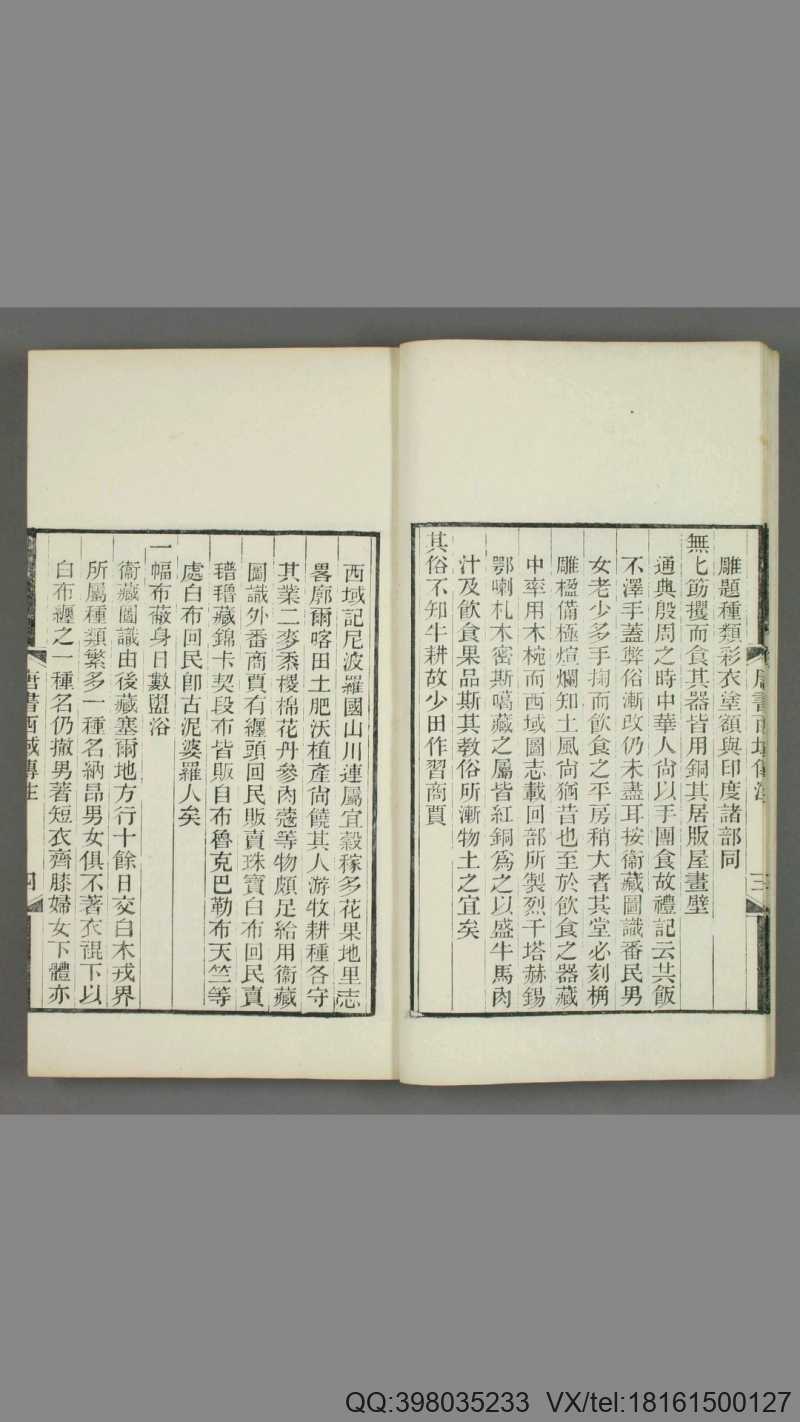 雕題種類彩衣塗額與印度諸部同
無匕筯攫而食其器皆用銅其居版屋畫壁
通典殷周之時中華人尙以手團食故禮記云共飯
不澤手蓋弊俗漸改仍未盡耳按衞藏圖識番民男
女老少多手掬而飮食之平房稍大者其堂必刻桷
雕楹備極煊爛知土風尙猶昔也至於飮食之器藏
中率用木椀而西域圖志載回部所製烈干塔赫錫
鄂喇札木密斯噶藏之屬皆紅銅爲之以盛牛馬肉
汁及飮食果品斯其敎俗所漸物土之宜矣
其俗不知牛耕故少田作習商賈
西域記尼波羅國山川連屬宜穀稼多花果地里志
畧廓爾喀田土肥沃植產尙饒其人游牧耕種各守
其業二麥黍稷棉花丹參肉蔻等物頗足給用衞藏
圖識外番商賈有纏頭回民販賣珠寶白布回民賣
氆氌藏錦卡契段布皆販自布魯克巴勒布天竺等
處白布回民卽古泥婆羅人矣
一幅布蔽身日數盥浴
衞藏圖識由後藏塞爾地方行十餘日交白木戎界
所屬種類繁多一種名納昂男女俱不著衣褌下以
白布纏之一種名仍撤男著短衣齊膝婦女下體亦
唐書西域傳注
三
唐書西域傳注
四
QQ:398035233 VX/tel:18161500127